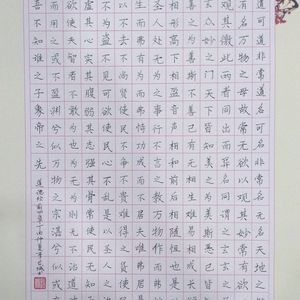 道可道非常道名可非常名无名天地之
有名万物之母故常无欲以观其妙常有欲
观其徼此两者同出而异名同谓之玄玄之又
玄众妙之门天下皆知美之为美斯恶已皆
善之为善斯不善已有无相生难易相成
相形高下相盈音声相和前后相随恒也是
圣人处无为之事行不言之教万物作
生而弗有为而弗恃功成而弗居夫唯弗居
以不去不尚贤使民不争不贵难得之货使
不为盗不见可欲使民心不乱是以圣人之
虚其心实其腹弱其志强其骨常使民无
欲使夫智者不敢为也为无为则无不治道
而用之或不盈渊兮似万物之宗湛兮似或
吾不知谁之子象帝之先
道德经